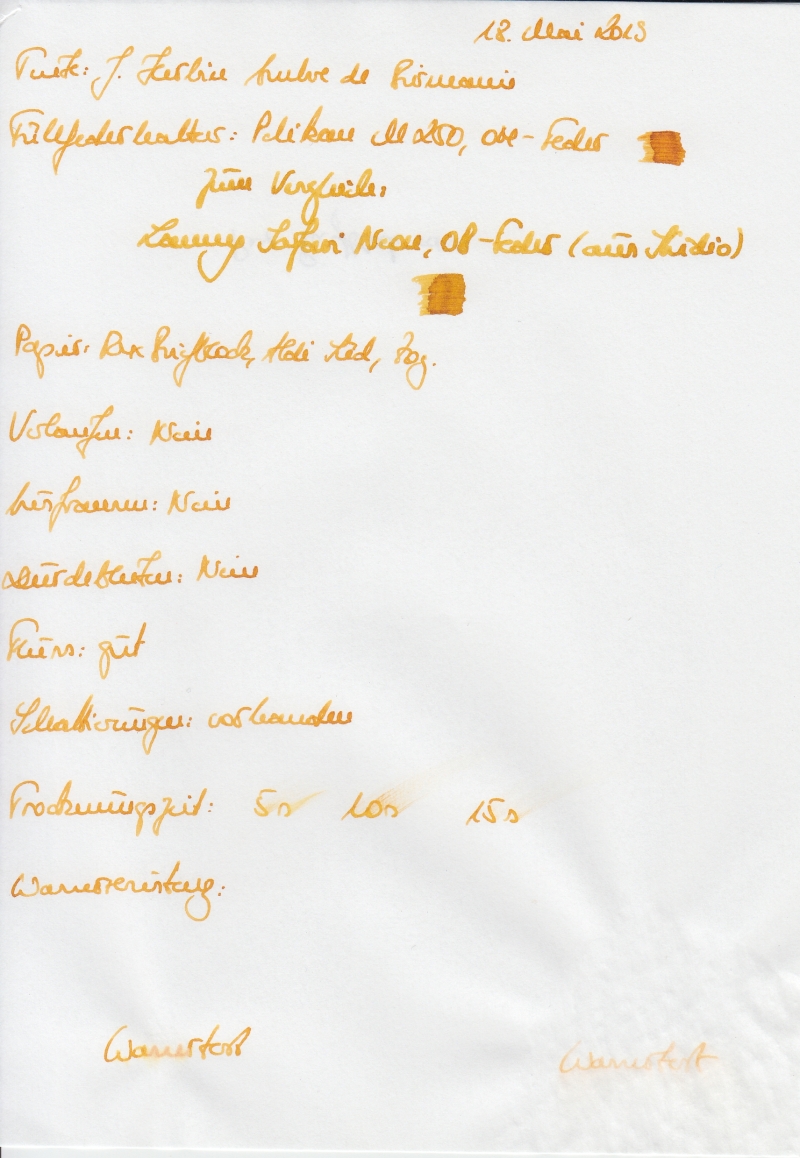 18. Mai 2019
Tinte: J. Herbin Ambre de Birmanie
Füllfederhalter: Pelikan M 250, OM-Feder
Zum Vergleich:
Lamy Safari Neon, OB-Feder (aus Studio)
Papier: Briefblock, Aldi Süd, 80g.
Verlaufen: Nein
Ausfransen: Nein
Durchbluten: Nein
Fluss: gut
Schattierungen: vorhanden
Trocknungszeit: 5s 10s 15s
Wasserfest Wasserfest